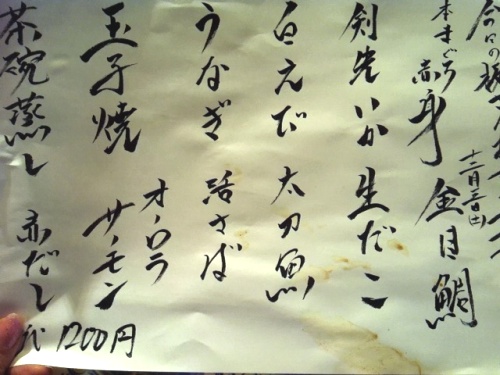 本まぐろ赤身 金目鯛
剣先いか 生だこ
白えび 太刀魚
うなぎ 活さば
玉子焼 オーロラサーモン
茶碗蒸し 赤だし
1200円